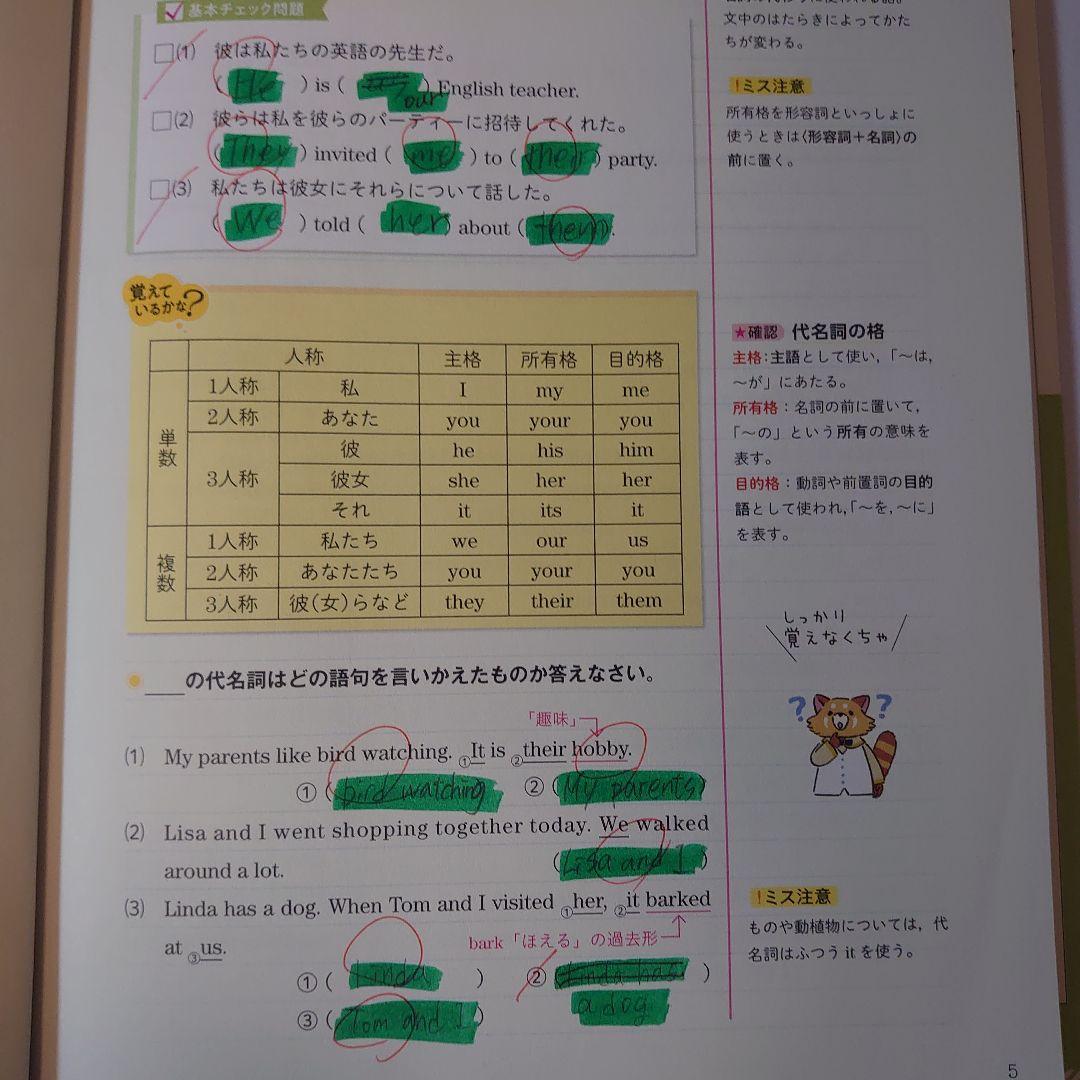 基本チェック問題
(1) 彼は私たちの英語の先生だ。
( He ) is ( our ) English teacher.
(2) 彼らは私を彼らのパーティーに招待してくれた。
( They ) invited ( me ) to ( their ) party.
(3) 私たちは彼女にそれらについて話した。
( We ) told ( her ) about ( them ).
文中のはたらきによってかた
ちが変わる。
!ミス注意
所有格を形容詞といっしょに
使うときは〈形容詞+名詞〉の
前に置く。
覚えて
いるかな?
人称 主格 所有格 目的格
単数 1人称 私 I my me
2人称 あなた you your you
3人称 彼 he his him
彼女 she her her
それ it its it
複数 1人称 私たち we our us
2人称 あなたたち you your you
3人称 彼(女)らなど they their them
★確認 代名詞の格
主格:主語として使い,「〜は,
〜が」にあたる。
所有格:名詞の前に置いて,
「〜の」という所有の意味を
表す。
目的格:動詞や前置詞の目的
語として使われ,「〜を,〜に」
を表す。
しっかり
覚えなくちゃ
? ?
____の代名詞はどの語句を言いかえたものか答えなさい。
「趣味」
(1) My parents like bird watching. ①It is ②their hobby.
① ( bird watching ) ② ( My parents )
(2) Lisa and I went shopping together today. We walked
around a lot. ( Lisa and I )
(3) Linda has a dog. When Tom and I visited ①her, ②it barked
at ③us. bark「ほえる」の過去形
① ( Linda ) ② ( Linda has )
a dog
③ ( Tom and I )
!ミス注意
ものや動植物については,代
名詞はふつう it を使う。
5